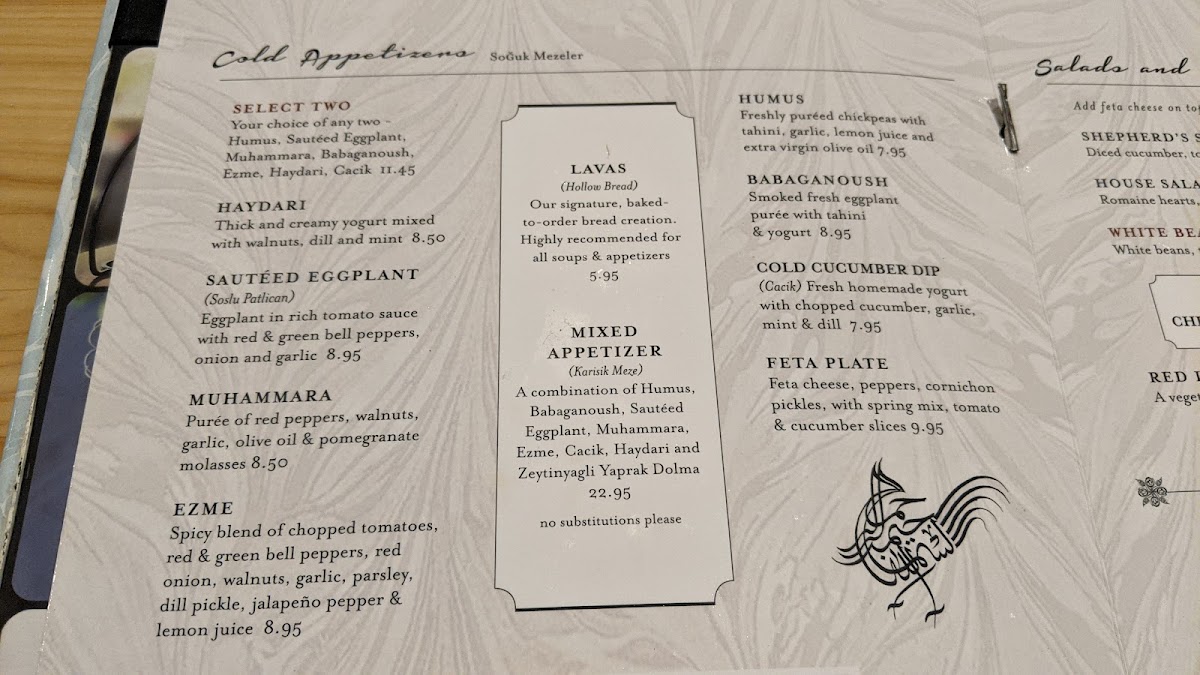 Cold Appetizers SoĞuk Mezeler
SELECT TWO
Your choice of any two -
Humus, Sautéed Eggplant,
Muhammara, Babaganoush,
Ezme, Haydari, Cacik 11.45
HAYDARI
Thick and creamy yogurt mixed
with walnuts, dill and mint 8.50
SAUTÉED EGGPLANT
(Soslu Patlican)
Eggplant in rich tomato sauce
with red & green bell peppers,
onion and garlic 8.95
MUHAMMARA
Purée of red peppers, walnuts,
garlic, olive oil & pomegranate
molasses 8.50
EZME
Spicy blend of chopped tomatoes,
red & green bell peppers, red
onion, walnuts, garlic, parsley,
dill pickle, jalapeño pepper &
lemon juice 8.95
LAVAS
(Hollow Bread)
Our signature, baked-
to-order bread creation.
Highly recommended for
all soups & appetizers
5.95
MIXED
APPETIZER
(Karisik Meze)
A combination of Humus,
Babaganoush, Sautéed
Eggplant, Muhammara,
Ezme, Cacik, Haydari and
Zeytinyagli Yaprak Dolma
22.95
no substitutions please
HUMUS
Freshly puréed chickpeas with
tahini, garlic, lemon juice and
extra virgin olive oil 7.95
BABAGANOUSH
Smoked fresh eggplant
purée with tahini
& yogurt 8.95
COLD CUCUMBER DIP
(Cacik) Fresh homemade yogurt
with chopped cucumber, garlic,
mint & dill 7.95
FETA PLATE
Feta cheese, peppers, cornichon
pickles, with spring mix, tomato
& cucumber slices 9.95
Salads and
Add feta cheese on
SHEPHERD'S
Diced cucumber,
HOUSE
Romaine hearts,
WHITE
White beans,
RED
A